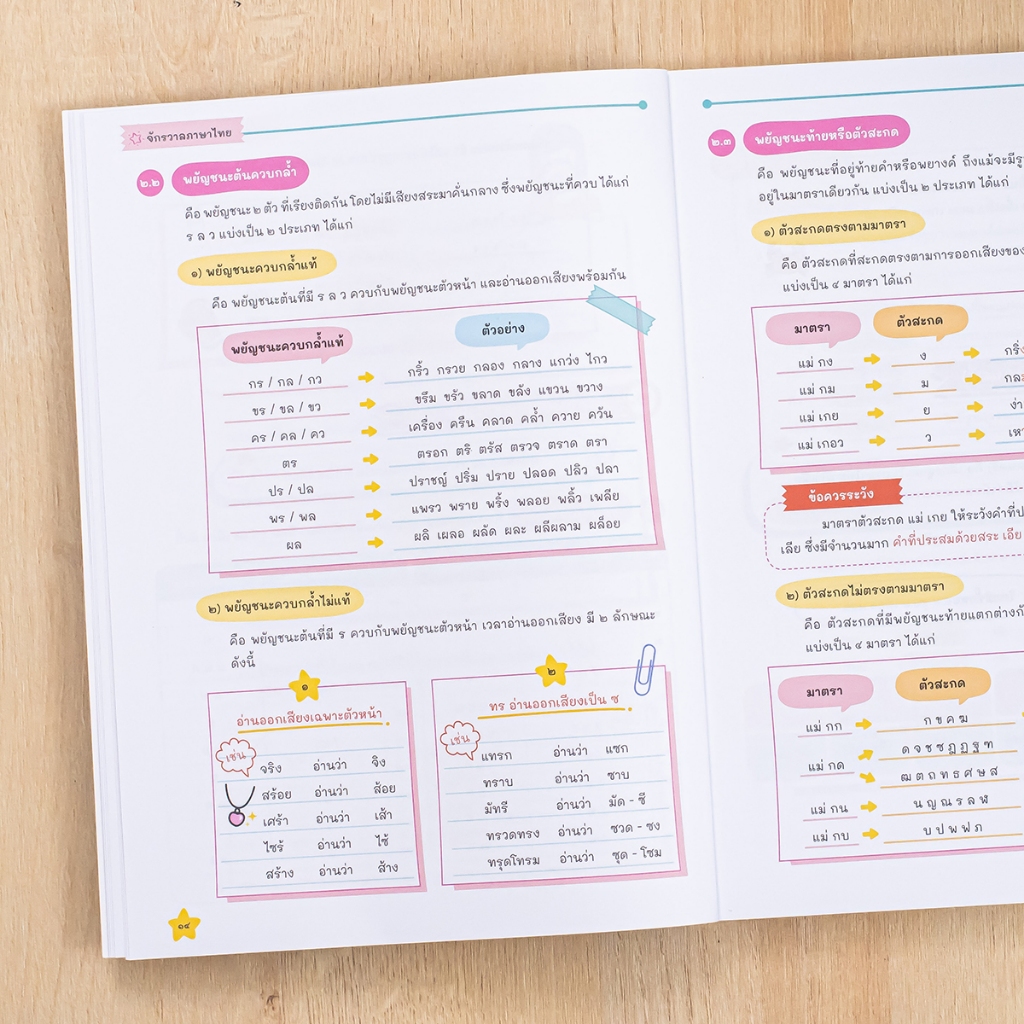 จักรวาลภาษาไทย
๒.๒ พยัญชนะต้นควบกล้ำ
คือ พยัญชนะ ๒ ตัว ที่เรียงติดกัน โดยไม่มีเสียงสระมาคั่นกลาง ซึ่งพยัญชนะที่ควบ ได้แก่
ร ล ว แบ่งเป็น ๒ ประเภท ได้แก่
๑) พยัญชนะควบกล้ำแท้
คือ พยัญชนะต้นที่มี ร ล ว ควบกับพยัญชนะตัวหน้า และอ่านออกเสียงพร้อมกัน
พยัญชนะควบกล้ำแท้ ตัวอย่าง
กร / กล / กว กริ้ว กรวย กลอง กลาง แกว่ง ไกว
ขร / ขล / ขว ขรึม ขรัว ขลาด ขลัง แขวน ขวาง
คร / คล / คว เครื่อง ครืน คลาด คล้ำ ควาย ควัน
ตร ตรอก ตริ ตรัส ตรวจ ตราด ตรา
ปร / ปล ปราชญ์ ปริ่ม ปราย ปลอด ปลิว ปลา
พร / พล แพรว พราย พริ้ง พลอย พลิ้ว เพลีย
ผล ผลิ เผลอ ผลัด ผละ ผลีผลาม ผล็อย
๒) พยัญชนะควบกล้ำไม่แท้
คือ พยัญชนะต้นที่มี ร ควบกับพยัญชนะตัวหน้า เวลาอ่านออกเสียง มี ๒ ลักษณะ
ดังนี้
๑
อ่านออกเสียงเฉพาะตัวหน้า
เช่น
จริง อ่านว่า จิง
สร้อย อ่านว่า ส้อย
เศร้า อ่านว่า เส้า
ไซร้ อ่านว่า ไซ้
สร้าง อ่านว่า ส้าง
๒
ทร อ่านออกเสียงเป็น ซ
เช่น
แทรก อ่านว่า แซก
ทราบ อ่านว่า ซาบ
มัทรี อ่านว่า มัด - ซี
ทรวดทรง อ่านว่า ซวด - ซง
ทรุดโทรม อ่านว่า ซุด - โซม
๑๔
๒.๓ พยัญชนะท้ายหรือตัวสะกด
คือ พยัญชนะที่อยู่ท้ายคำหรือพยางค์ ถึงแม้จะมีรู
อยู่ในมาตราเดียวกัน แบ่งเป็น ๒ ประเภท ได้แก่
๑) ตัวสะกดตรงตามมาตรา
คือ ตัวสะกดที่สะกดตรงตามการออกเสียงของ
แบ่งเป็น ๔ มาตรา ได้แก่
มาตรา ตัวสะกด
แม่ กง ง
แม่ กม ม
แม่ เกย ย
แม่ เกอว ว
ข้อควรระวัง
มาตราตัวสะกด แม่ เกย ให้ระวังคำที่ป
เลีย ซึ่งมีจำนวนมาก คำที่ประสมด้วยสระ เอีย
๒) ตัวสะกดไม่ตรงตามมาตรา
คือ ตัวสะกดที่มีพยัญชนะท้ายแตกต่างกั
แบ่งเป็น ๔ มาตรา ได้แก่
มาตรา ตัวสะกด
แม่ กก ก ข ค ฆ
แม่ กด ด จ ช ซ ฎ ฏ ฐ ฑ
ฒ ต ถ ท ธ ศ ษ ส
แม่ กน น ญ ณ ร ล ฬ
แม่ กบ บ ป พ ฟ ภ